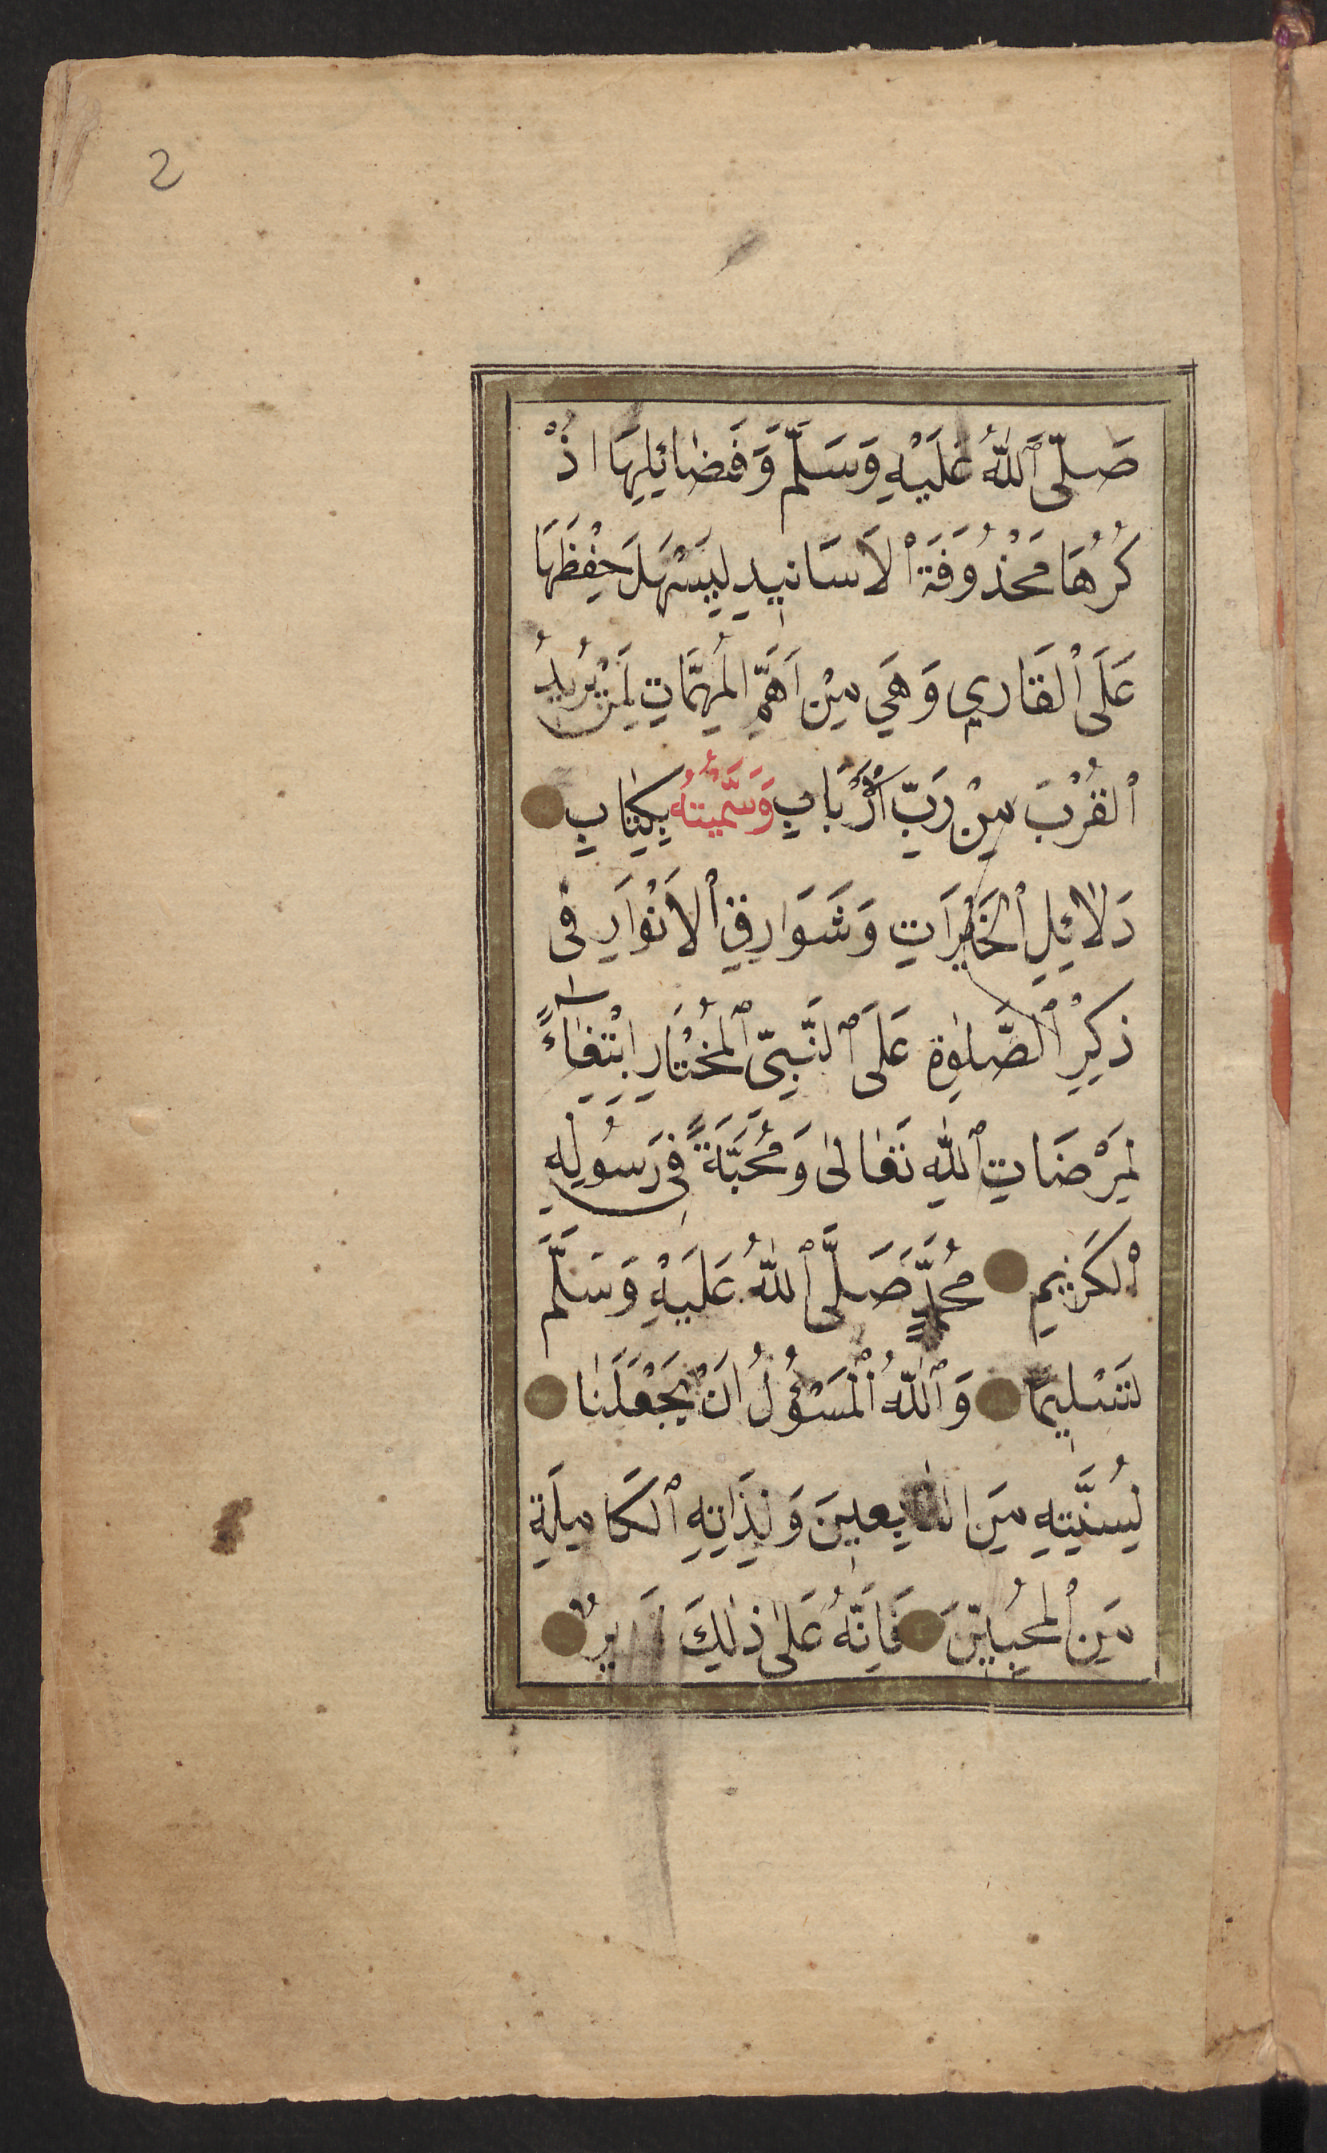 2
صَلَّى ٱللّٰهُ عَلَيْهِ وَسَلَّمَ وَفَضَائِلِهَا اذْ
كُرُهَا مَحْذُوفَةَ ٱلاَسَانِيدِ لِيَسْهَلَ حِفْظُهَا
عَلَى ٱلْقَارِي وَهِيَ مِنْ اَهَمِّ الْمُهِمَّاتِ لِمَنْ يُرِيدُ
ٱلْقُرْبَ مِنْ رَبِّ ٱلْاَرْبَابِ وَسَمَّيْتُهُ بِكِتَابِ
دَلَائِلِ ٱلْخَيْرَاتِ وَشَوَارِقِ ٱلاَنْوَارِ فِى
ذِكْرِ ٱلصَّلٰوةِ عَلَى ٱلنَّبِيِّ ٱلْمُخْتَارِ ابْتِغَآءً
لِمَرْضَاتِ ٱللّٰهِ تَعَالٰى وَمُحَبَّةً فِى رَسُولِهِ
ٱلْكَرِيمِ مُحَمَّدٍ صَلَّى ٱللّٰهُ عَلَيْهِ وَسَلَّمَ
تَسْلِيمًا وَٱللّٰهُ ٱلْمَسْؤُلُ اَنْ يَجْعَلَنَا
لِسُنَّتِهِ مِنَ التَّابِعِينَ وَلِذَاتِهِ ٱلْكَامِلَةِ
مِنَ ٱلْمُحِبِّينَ فَاِنَّهُ عَلٰى ذٰلِكَ